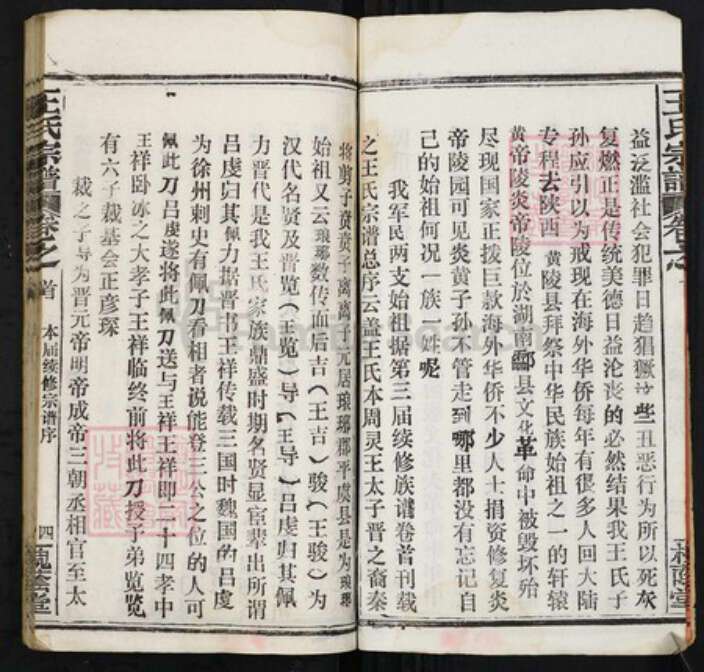 益泛滥社会犯罪日趋猖獗这些丑恶行为所以死灰
复燃正是传统美德日益沦丧的必然结果我王氏子
孙应引以为戒现在海外华侨每年有很多人回大陆
专程去陕西 黄陵县拜祭中华民族始祖之一的轩辕
黄帝陵炎帝陵位於湖南酃县文化革命中被毁坏殆
尽现国家正拨巨款海外华侨不少人士捐资修复炎
帝陵园可见炎黄子孙不管走到哪里都没有忘记自
己的始祖何况一族一姓呢
我军民两支始祖据第三届续修族谱卷首刊载
之王氏宗谱总序云盖王氏本周灵王太子晋之裔秦
将剪子贲贲子离离子元居琅琊郡平虞县是为琅琊
始祖又云琅琊数传而后吉(王吉)骏(王骏)为
汉代名贤及晋览(王览)导(王导)吕虔归其佩
力晋代是为我王氏家族鼎盛时期名贤显宦辈出所谓
吕虔归其佩力据晋书王祥传载三国时魏国的吕虔
为徐州刺史有佩刀看相者说能登三公之位的人可
佩此刀吕虔遂将此佩刀送与王祥王祥即二十四孝中
王祥卧冰之大孝子王祥临终前将此刀授予弟览览
有六子裁基会正彦琛
裁之子导为晋元帝明帝成帝三朝丞相官至太
王氏宗谱 卷之首 本届续修宗谱序 四 槐荫堂
王氏宗谱 卷之 槐荫堂